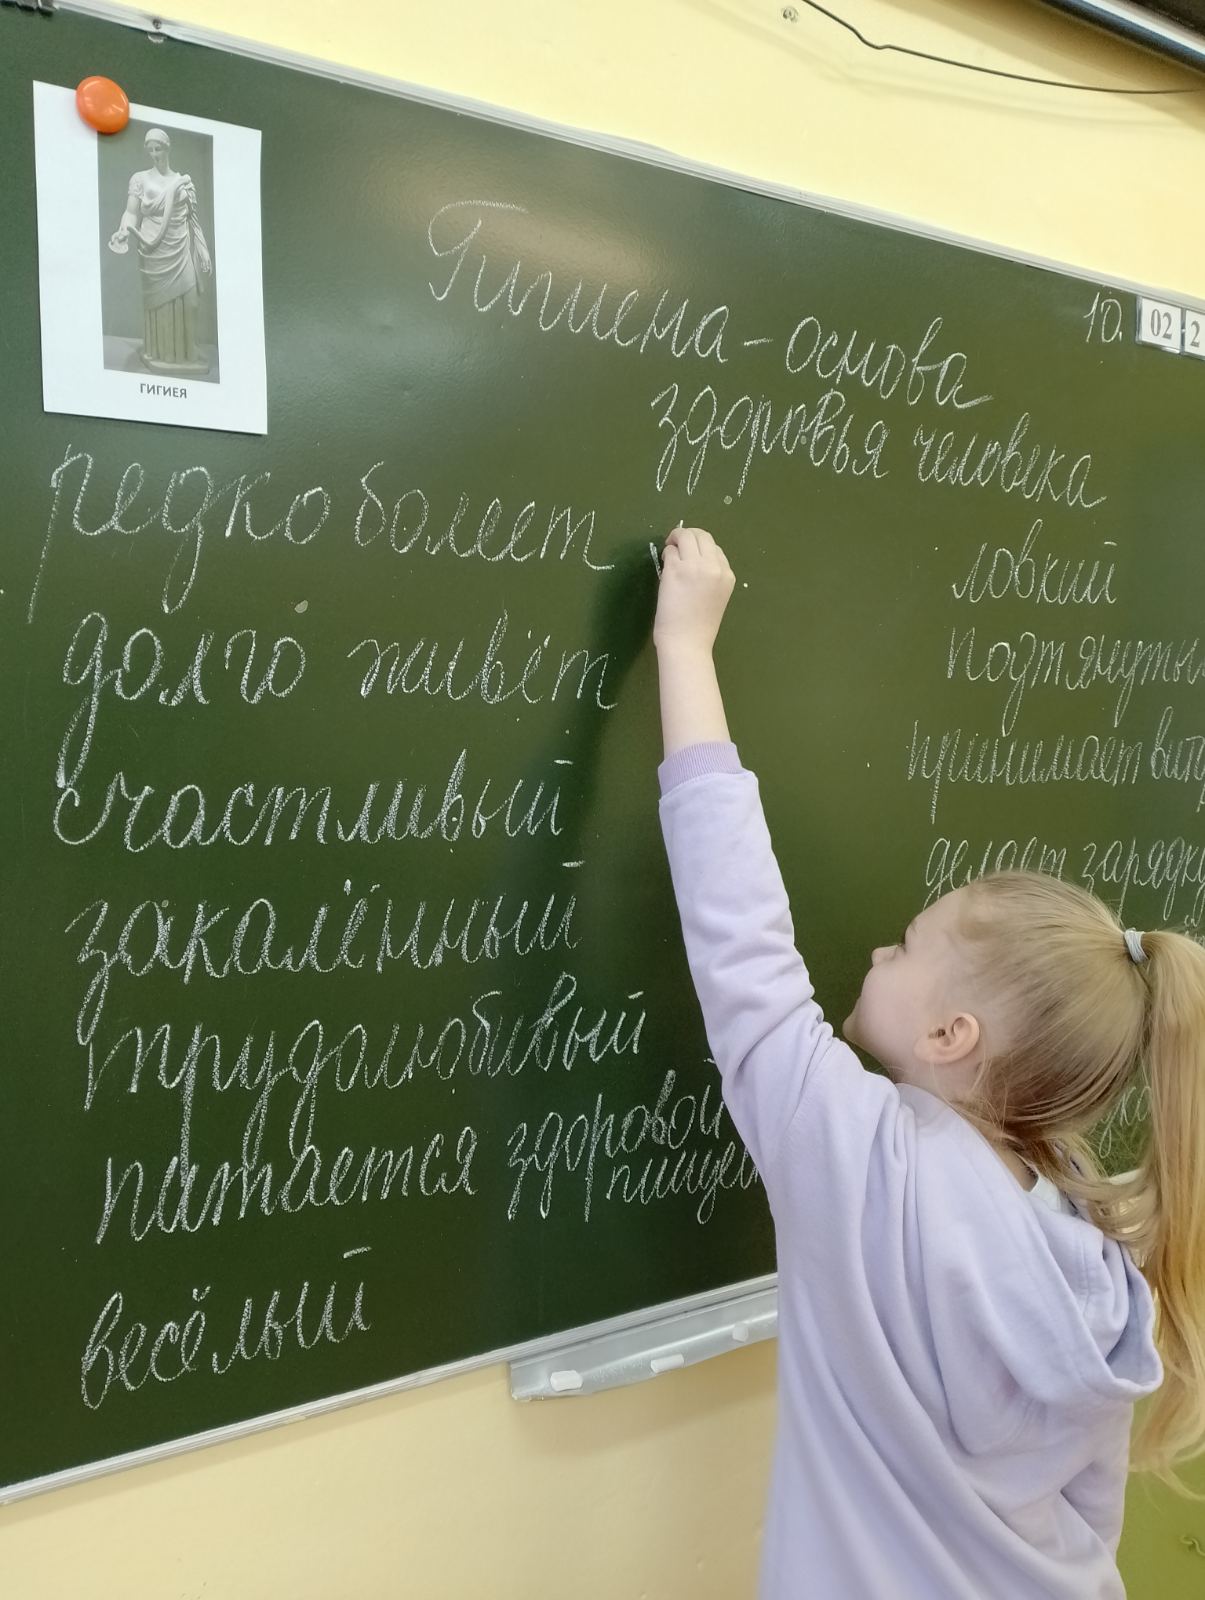 ГИГИЕЯ
Гигиена - основа
здоровья человека
10. 02 2
редко болеет
долго живёт
счастливый
закалённый
трудолюбивый
питается здоровой
пищей
весёлый
ловкий
подтянуты
принимает вит
делает зарядку